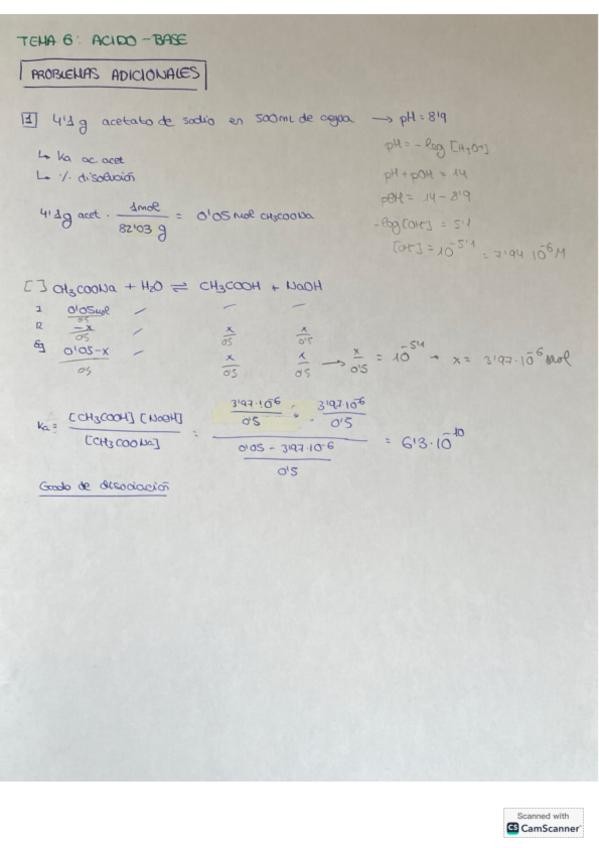 TEMA 6: ACIDO-BASE
PROBLEMAS ADICIONALES
1 4'1g acetato de sodio en 500mL de agua → pH = 8'9
↳ Ka ac acet
↳ % disolución
pH = -log [H3O+]
pH + pOH = 14
pOH = 14 - 8'9
-log [OH-] = 5'1
[OH-] = 10^-5'1 = 7'94 10^-6 M
4'1g acet · 1mol / 82'03 g = 0'05 mol CH3COONa
[ ] CH3COONa + H2O ⇌ CH3COOH + NaOH
I 0'05mol/05 - - -
R -x/05 - x/05 x/0'5
Eq 0'05-x/05 - x/05 x/05 → x/0'5 = 10^-5'1 → x = 3'97·10^-6 mol
Ka = [CH3COOH] [NaOH] / [CH3COONa] = 3'97·10^-6/0'5 · 3'97·10^-6/0'5 / 0'05 - 3'97·10^-6/0'5 = 6'3·10^-10
Grado de disociación
Scanned with
CS CamScanner